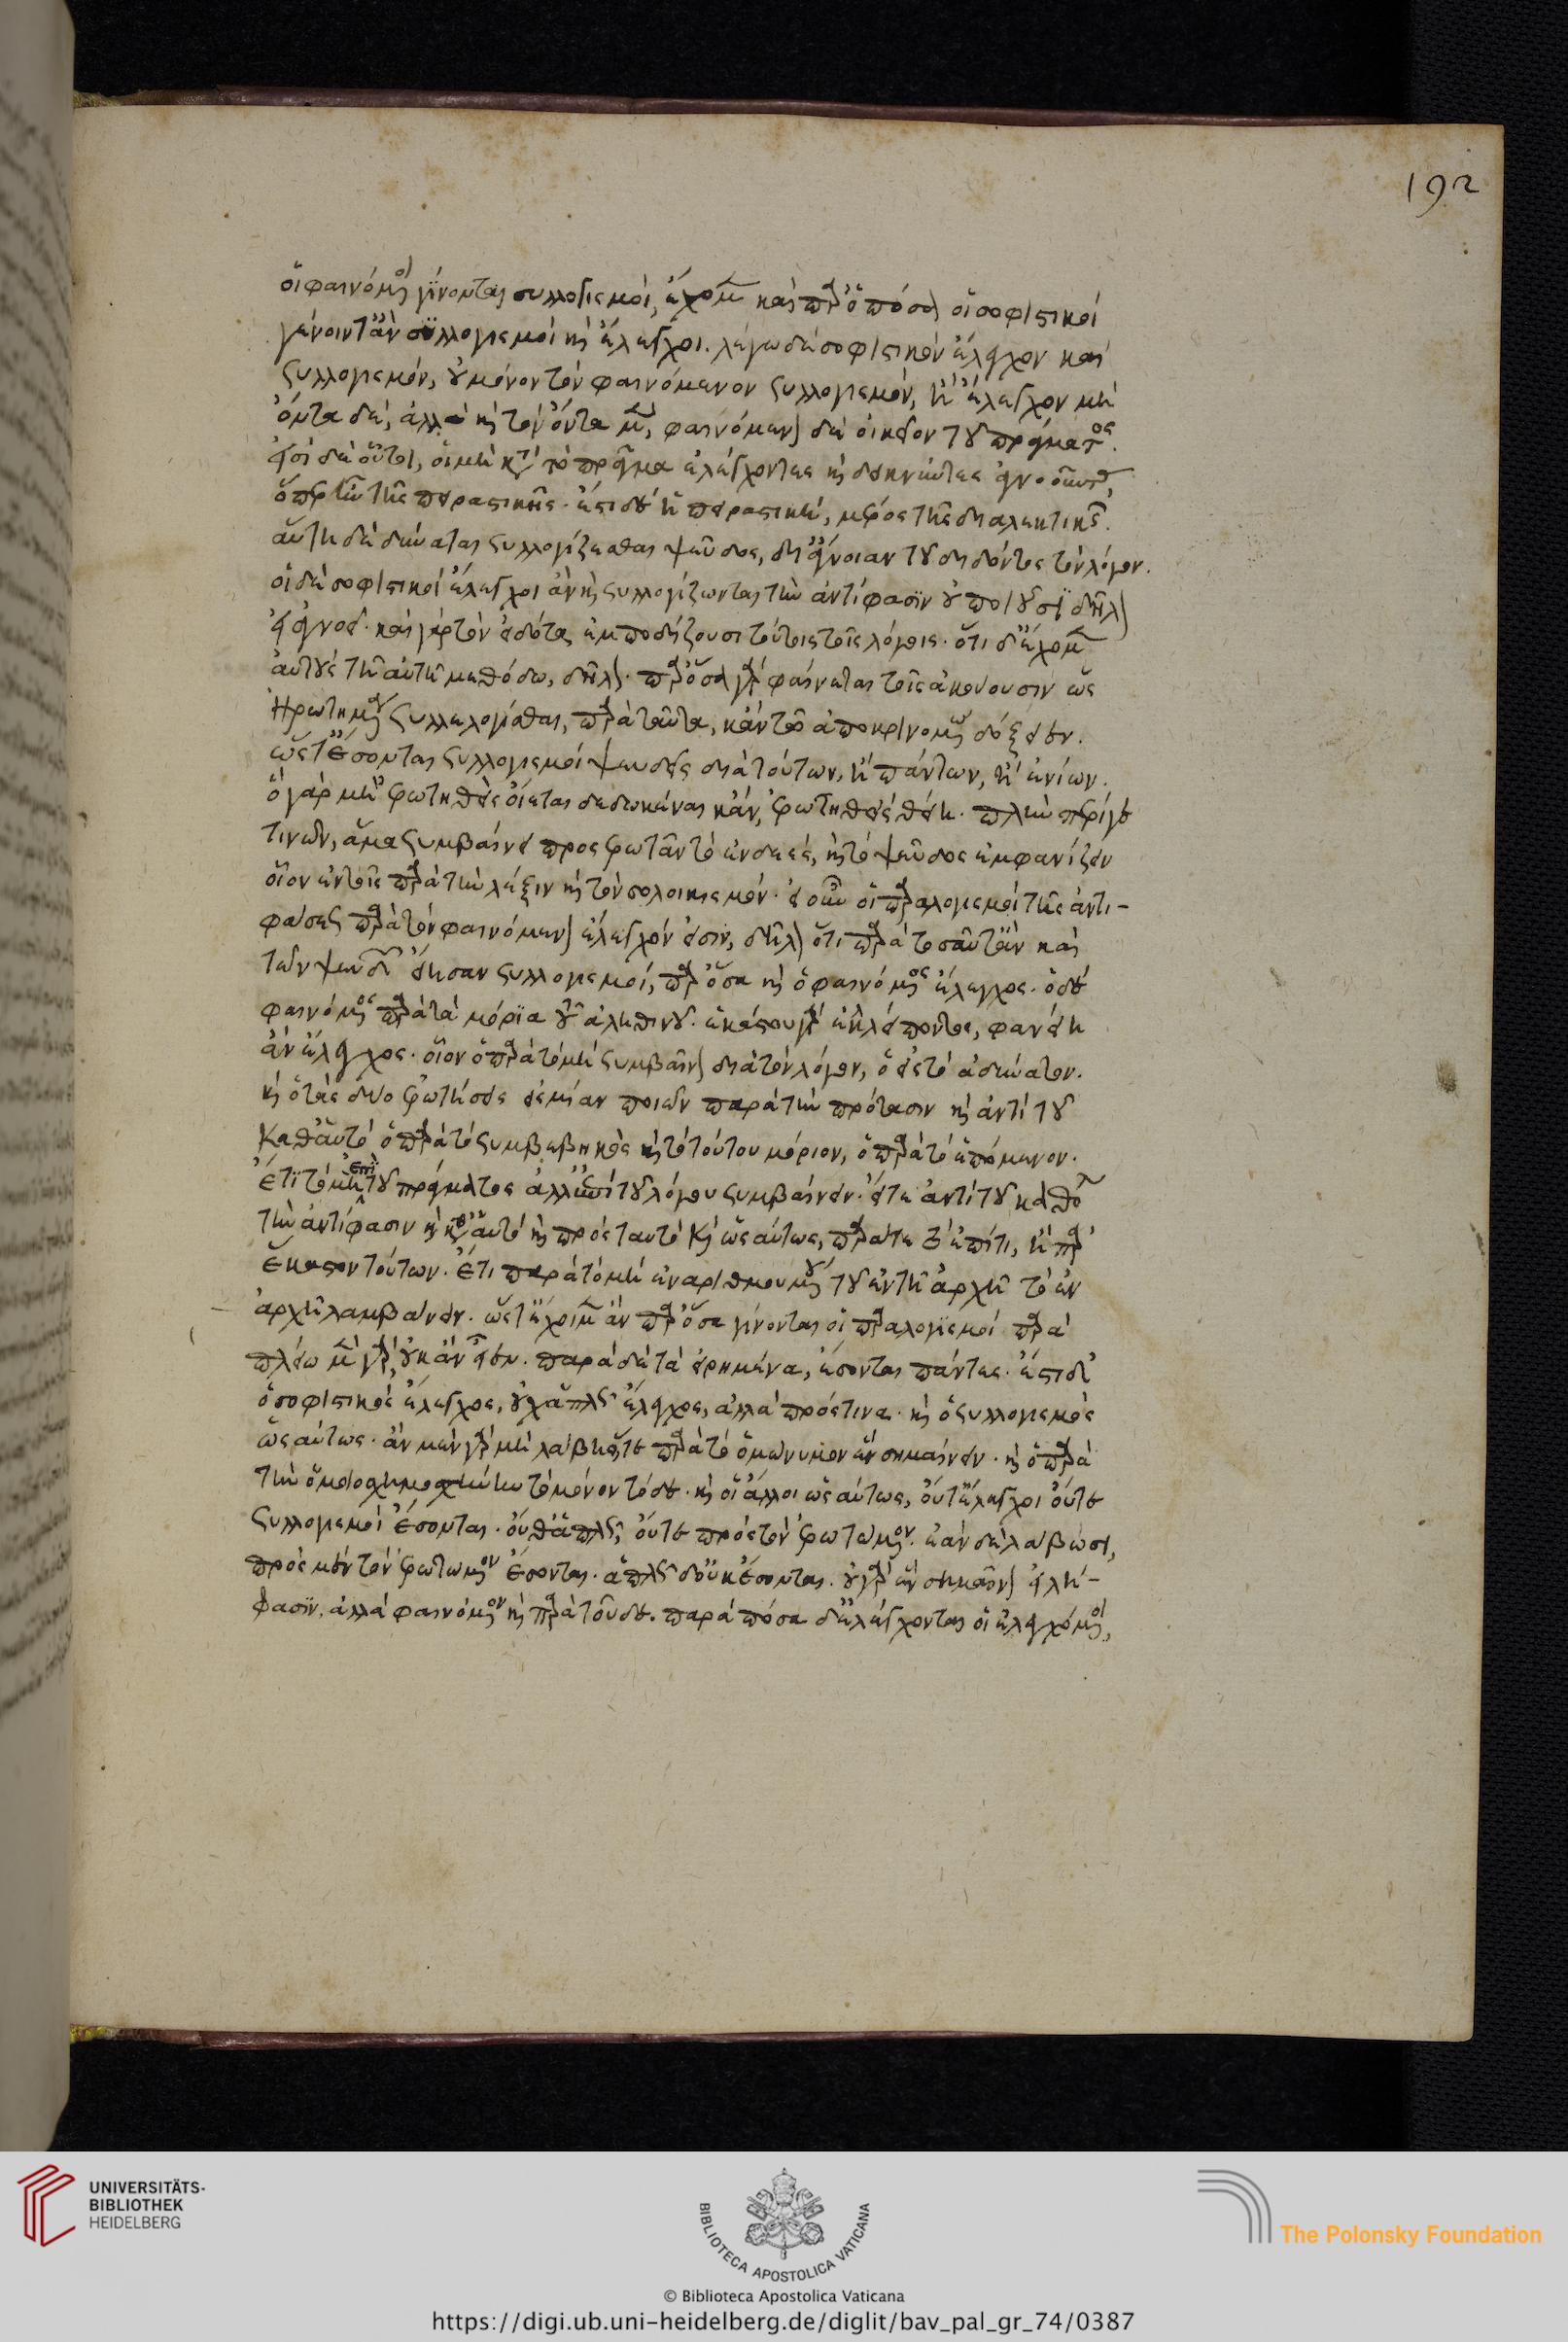 οἱ φαινόμενοι γίνονται συλλογισμοί, ἔχομεν καὶ παρ' ὁπόσα οἱ σοφιστικοὶ
γένοιντ' ἂν συλλογισμοὶ καὶ ἔλεγχοι. λέγω δὲ σοφιστικὸν ἔλεγχον καὶ
συλλογισμὸν, οὐ μόνον τὸν φαινόμενον συλλογισμὸν, ἢ ἔλεγχον μὴ
ὄντα δέ, ἀλλὰ καὶ τὸν ὄντα μέν, φαινόμενον δὲ οἰκεῖον τοῦ πράγματος.
εἰσὶ δὲ οὗτοι, οἱ μὴ κατὰ τὸ πρᾶγμα ἐλέγχοντες καὶ δεικνύντες ἀγνοοῦντας,
ὅπερ ἦν τῆς πειραστικῆς. ἔστι δὲ ἡ πειραστικὴ, μέρος τῆς διαλεκτικῆς.
αὕτη δὲ δύναται συλλογίζεσθαι ψεῦδος, δι' ἄγνοιαν τοῦ διδόντος τὸν λόγον.
οἱ δὲ σοφιστικοὶ ἔλεγχοι ἂν καὶ συλλογίζωνται τὴν ἀντίφασιν οὐ ποιοῦσι δῆλον
εἰ ἀγνοεῖ. καὶ γὰρ τὸν εἰδότα ἐμποδίζουσι τούτοις τοῖς λόγοις. ὅτι δ' ἔχομεν
αὐτοὺς τῇ αὐτῇ μεθόδῳ, δῆλον. παρ' ὅσα γὰρ φαίνεται τοῖς ἀκούουσιν ὡς
ἠρωτημένου συλλελογίσθαι, παρὰ ταῦτα, κἂν τῷ ἀποκρινομένῳ δόξειεν.
ὥστ' ἔσονται συλλογισμοὶ ψευδεῖς διὰ τούτων, ἢ πάντων, ἢ ἐνίων.
ὃ γὰρ μὴ ἐρωτηθεὶς οἴεται δεδωκέναι κἂν, ἐρωτηθεὶς θείη. πλὴν ἐπί γέ
τινων, ἅμα συμβαίνει προσερωτᾶν τὸ ἐνδεές, καὶ τὸ ψεῦδος ἐμφανίζειν
οἷον ἐν τοῖς παρὰ τὴν λέξιν καὶ τὸν σολοικισμόν. εἰ οὖν οἱ παραλογισμοὶ τῆς ἀντι-
φάσεως παρὰ τὸν φαινόμενον ἔλεγχόν εἰσιν, δῆλον ὅτι παρὰ τοσαῦτ' ἂν καὶ
τῶν ψευδῶν εἴησαν συλλογισμοί, παρ' ὅσα καὶ ὁ φαινόμενος ἔλεγχος. ὁ δὲ
φαινόμενος παρὰ τὰ μόρια τοῦ ἀληθινοῦ. ἑκάστου γὰρ ἐκλείποντος, φανείη
ἂν ἔλεγχος. οἷον ὁ παρὰ τὸ μὴ συμβαῖνον διὰ τὸν λόγον, ὁ εἰς τὸ ἀδύνατον.
καὶ ὁ τὰς δύο ἐρωτήσεις μίαν ποιῶν παρὰ τὴν πρότασιν καὶ ἀντὶ τοῦ
καθ' αὑτὸ ὁ παρὰ τὸ συμβεβηκὸς καὶ τὸ τούτου μόριον, ὁ παρὰ τὸ ἑπόμενον.
ἔτι τὸ μὴ ἐπὶ τοῦ πράγματος ἀλλ' ἐπὶ τοῦ λόγου συμβαίνειν. εἶτα ἀντὶ τοῦ καθόλου
τὴν ἀντίφασιν καὶ κατ' αὐτὸ καὶ πρὸς ταυτὸ καὶ ὡσαύτως, παρά τε τὸ ἐπί τι, ἢ παρ'
ἕκαστον τούτων. ἔτι παρὰ τὸ μὴ ἐναριθμουμένου τοῦ ἐν τῇ ἀρχῇ τὸ ἐν
ἀρχῇ λαμβάνειν. ὥστ' ἔχοιμεν ἂν παρ' ὅσα γίνονται οἱ παραλογισμοί παρὰ
πλείω μὲν γὰρ οὐκ ἂν εἶεν. παρὰ δὲ τὰ εἰρημένα, ἔσονται πάντες. ἔστι δ'
ὁ σοφιστικὸς ἔλεγχος, οὐχ ἁπλῶς ἔλεγχος, ἀλλὰ πρός τινα. καὶ ὁ συλλογισμὸς
ὡσαύτως. ἂν μὲν γὰρ μὴ λάβῃ ὅτε παρὰ τὸ ὁμώνυμον ἓν σημαίνειν. καὶ ὁ παρὰ
τὴν ὁμοιοσχημοσύνην τὸ μόνον τόδε. καὶ οἱ ἄλλοι ὡσαύτως, οὔτ' ἔλεγχοι οὔτε
συλλογισμοὶ ἔσονται. οὔθ' ἁπλῶς, οὔτε πρὸς τὸν ἐρωτώμενον. ἐὰν δὲ λάβωσι,
πρὸς μὲν τὸν ἐρωτώμενον ἔσονται. ἁπλῶς δ' οὐκ ἔσονται. οὐ γὰρ ἓν σημαῖνον εἰλή-
φασιν. ἀλλὰ φαινόμενον καὶ παρὰ τοῦδε. παρὰ πόσα δ' ἐλέγχονται οἱ ἐλεγχόμενοι,
192
UNIVERSITÄTS-
BIBLIOTHEK
HEIDELBERG
BIBLIOTECA APOSTOLICA VATICANA
The Polonsky Foundation
© Biblioteca Apostolica Vaticana
https://digi.ub.uni-heidelberg.de/diglit/bav_pal_gr_74/0387